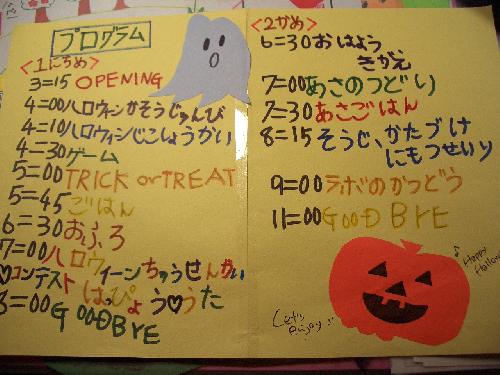 プログラム
<1にちめ>
3=15 OPENING
4=00ハロウィーンかそうじゅんび
4=10ハロウィンじこしょうかい
4=30ゲーム
5=00TRICK or TREAT
5=45ごはん
6=30おふろ
7=00ハロウィーンちゅうせんかい
♡コンテストはっぴょう♡うた
8=00GOODBYE
<2かめ>
6=30おはよう
きがえ
7=00あさのつどい
7=30あさごはん
8=15そうじ、かたづけ
にもつせいり
9=00ラボのかつどう
11=00GOODBYE
♪Happy
Let's
enjoy!!